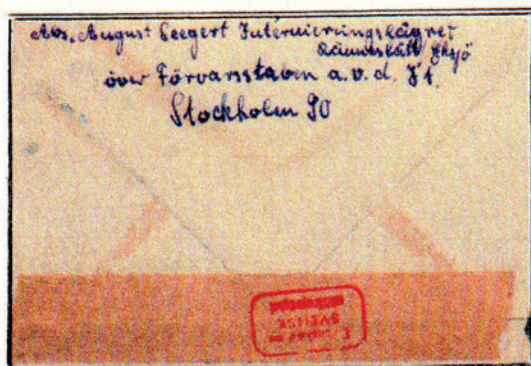 Abs. August Seegert Interneringslägret
Ränneslätt / Eksjö
över Förvarsstaben a.v.d. J1.
Stockholm 90